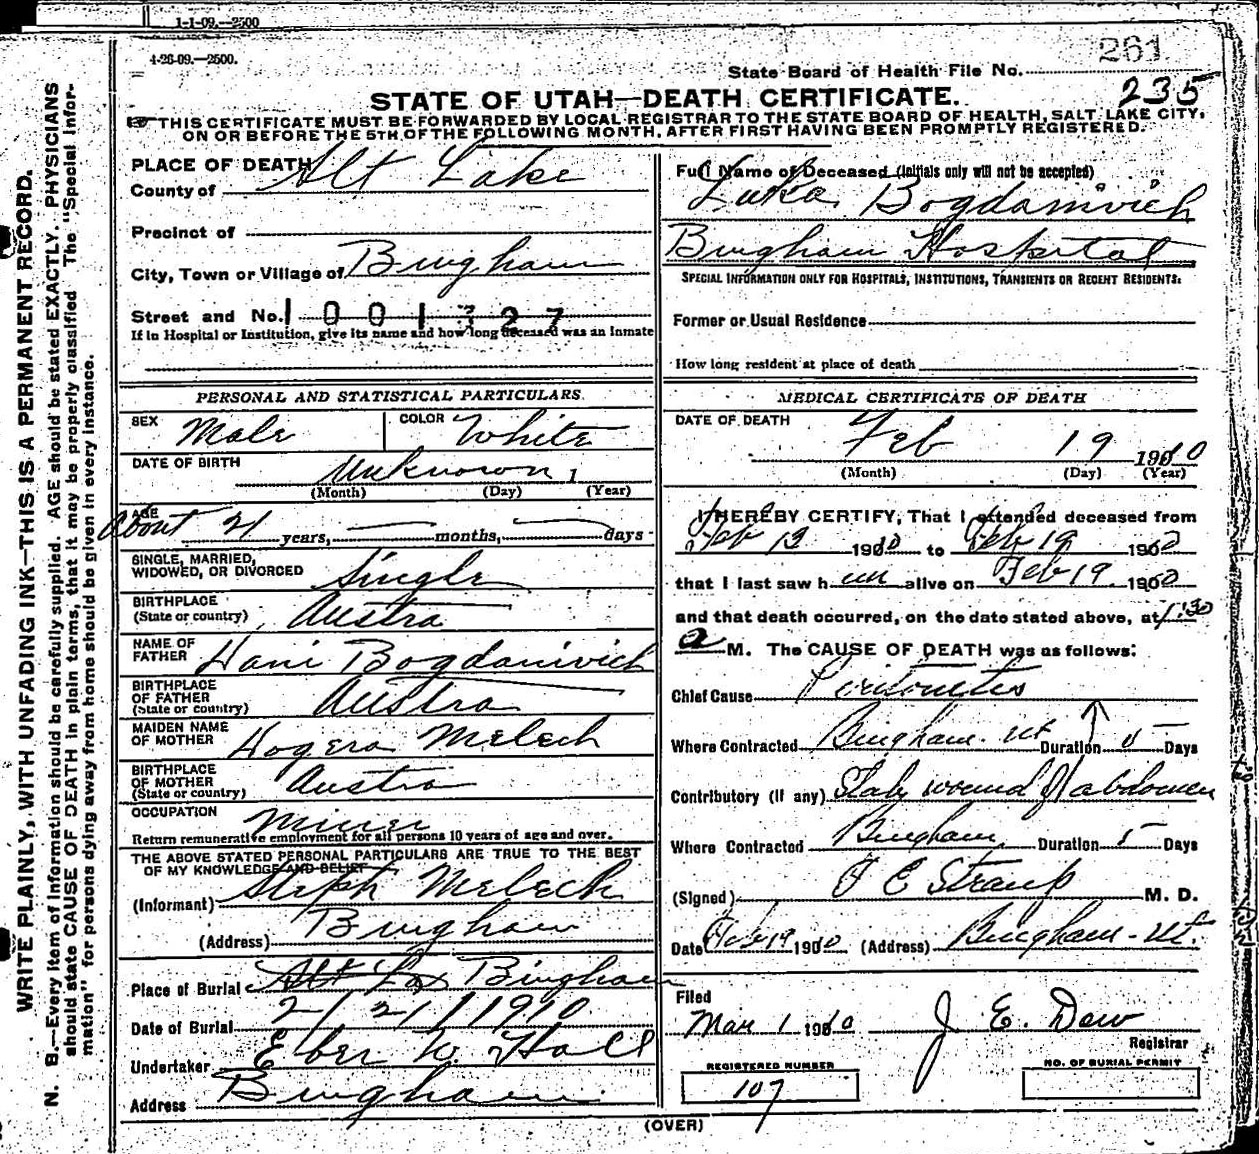 1-1-09.—2500
4-26-09.—2500.
261
State Board of Health File No.
235
STATE OF UTAH—DEATH CERTIFICATE.
THIS CERTIFICATE MUST BE FORWARDED BY LOCAL REGISTRAR TO THE STATE BOARD OF HEALTH, SALT LAKE CITY,
ON OR BEFORE THE 5TH OF THE FOLLOWING MONTH, AFTER FIRST HAVING BEEN PROMPTLY REGISTERED.
WRITE PLAINLY, WITH UNFADING INK—THIS IS A PERMANENT RECORD.
N. B.—Every item of information should be carefully supplied. AGE should be stated EXACTLY. PHYSICIANS
should state CAUSE OF DEATH in plain terms, that it may be properly classified The "Special Infor-
mation" for persons dying away from home should be given in every instance.
PLACE OF DEATH
County of Slt Lake
Precinct of
City, Town or Village of Bingham
Street and No. 1001327
If in Hospital or Institution, give its name and how long deceased was an Inmate
PERSONAL AND STATISTICAL PARTICULARS
SEX Male COLOR White
DATE OF BIRTH Unknown 1
(Month) (Day) (Year)
AGE
about 21 years, months, days
SINGLE, MARRIED,
WIDOWED, OR DIVORCED Single
BIRTHPLACE
(State or country) Austra
NAME OF
FATHER Hani Bogdanivich
BIRTHPLACE
OF FATHER
(State or country) Austra
MAIDEN NAME
OF MOTHER Hogera Melech
BIRTHPLACE
OF MOTHER
(State or country) Austra
OCCUPATION Miner
Return remunerative employment for all persons 10 years of age and over.
THE ABOVE STATED PERSONAL PARTICULARS ARE TRUE TO THE BEST
OF MY KNOWLEDGE AND BELIEF
(Informant) Steph Melech
(Address) Bingham
Place of Burial Bingham
Date of Burial 2/21/1910
Undertaker Eber W. Hall
Address Bingham
Full Name of Deceased (Initials only will not be accepted)
Luka Bogdanivich
Bingham Hospital
SPECIAL INFORMATION ONLY FOR HOSPITALS, INSTITUTIONS, TRANSIENTS OR RECENT RESIDENTS:
Former or Usual Residence
How long resident at place of death
MEDICAL CERTIFICATE OF DEATH
DATE OF DEATH
Feb 19 1910
(Month) (Day) (Year)
I HEREBY CERTIFY, That I attended deceased from
Feb 13 1910 to Feb 19 1910
that I last saw h im alive on Feb 19 1910
and that death occurred, on the date stated above, at 1:30
a M. The CAUSE OF DEATH was as follows:
Chief Cause Peritonitis
Where Contracted Bingham. Ut Duration 5 Days
Contributory (if any) Stab wound of abdomen
Where Contracted Bingham Duration 5 Days
(Signed) F E Straup M. D.
Date Feb 19 1910 (Address) Bingham - Ut.
Filed
Mar 1 1910 J. E. Dew
Registrar
REGISTERED NUMBER
107
NO. OF BURIAL PERMIT
(OVER)